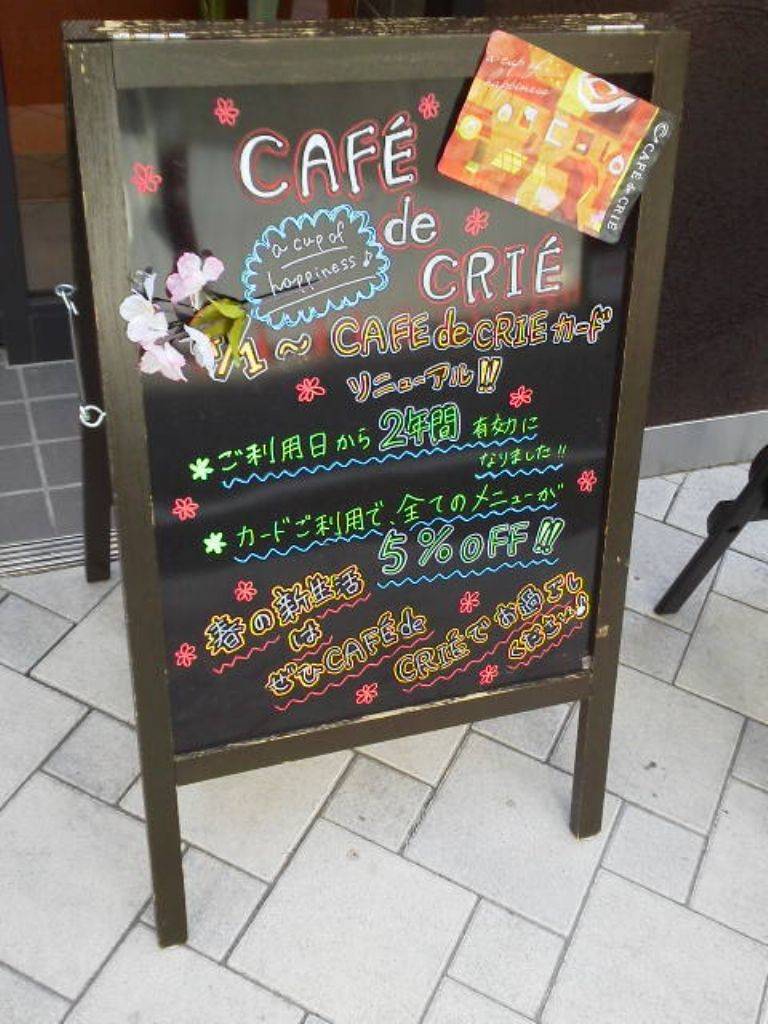 CAFÉ
de
CRIÉ
a cup of
happiness♪
a cup of
happiness
CAFÉ de CRIE
/1 ~ CAFE de CRIE カード
リニューアル!!
*ご利用日から 2年間 有効に
なりました!!
*カードご利用で、全てのメニューが
5%OFF!!
春の新生活
は
ぜひCAFÉ de
CRIÉでお過ごし
ください♪